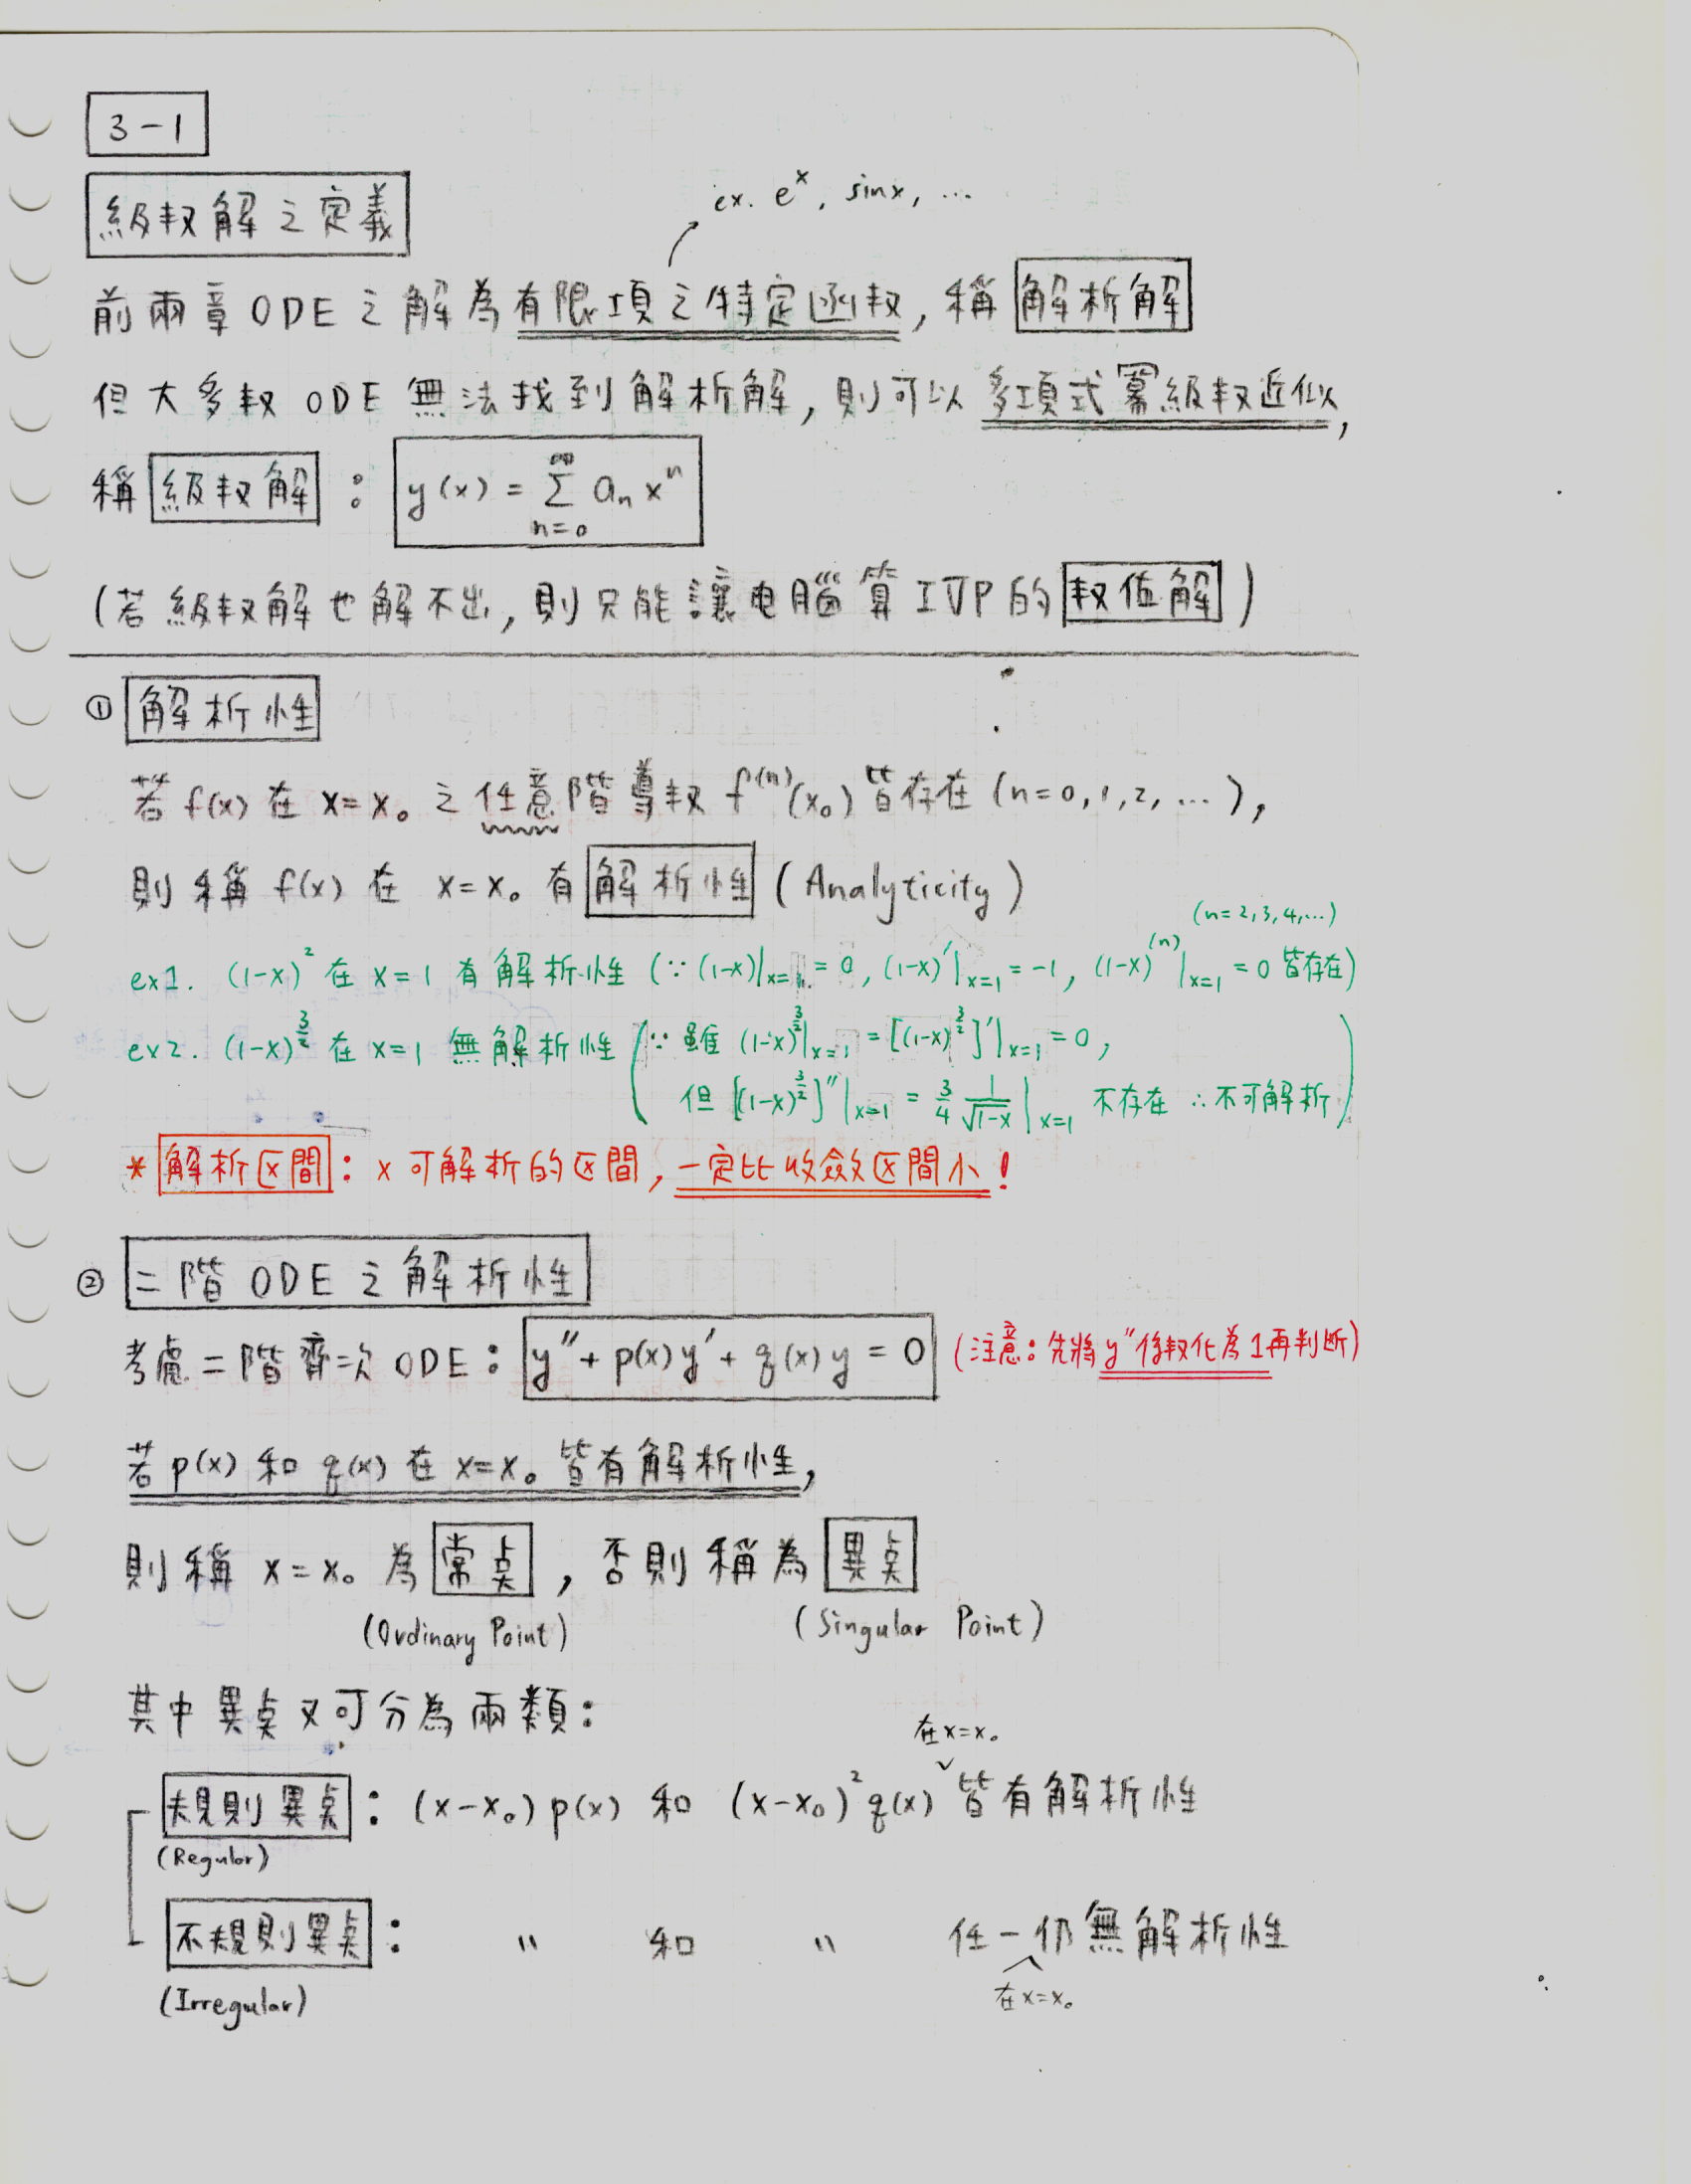 3-1
級数解之定義
ex. e^x, sinx, ...
前兩章ODE之解為有限項之特定函数, 稱解析解
但大多数ODE無法找到解析解, 則可以多項式冪級数近似,
稱級数解: y(x) = Σ_{n=0}^{∞} a_n x^n
(若級数解也解不出, 則只能讓电腦算IVP的数值解)
① 解析性
若 f(x) 在 x=x₀ 之任意階導数 f^(n)(x₀) 皆存在 (n=0,1,2,...),
則稱 f(x) 在 x=x₀ 有解析性 (Analyticity)
(n=2,3,4,...)
ex1. (1-x)² 在 x=1 有解析性 (∵ (1-x)|_{x=1} = 0, (1-x)'|_{x=1} = -1, (1-x)^(n)|_{x=1} = 0 皆存在)
ex2. (1-x)^{3/2} 在 x=1 無解析性 (∵ 雖 (1-x)^{3/2}|_{x=1} = [(1-x)^{3/2}]'|_{x=1} = 0,
但 [(1-x)^{3/2}]''|_{x=1} = 3/4 1/√(1-x)|_{x=1} 不存在 ∴不可解析)
* 解析区間: x 可解析的区間, 一定比收斂区間小!
② 二階ODE之解析性
考慮二階齊次ODE: y''+p(x)y'+q(x)y=0 (注意: 先將y''係数化為1再判断)
若 p(x) 和 q(x) 在 x=x₀ 皆有解析性,
則稱 x=x₀ 為常点, 否則稱為異点
(Ordinary Point) (Singular Point)
其中異点又可分為兩類:
在x=x₀
規則異点: (x-x₀)p(x) 和 (x-x₀)²q(x) 皆有解析性
(Regular)
不規則異点: " 和 " 任一仍無解析性
(Irregular) 在x=x₀